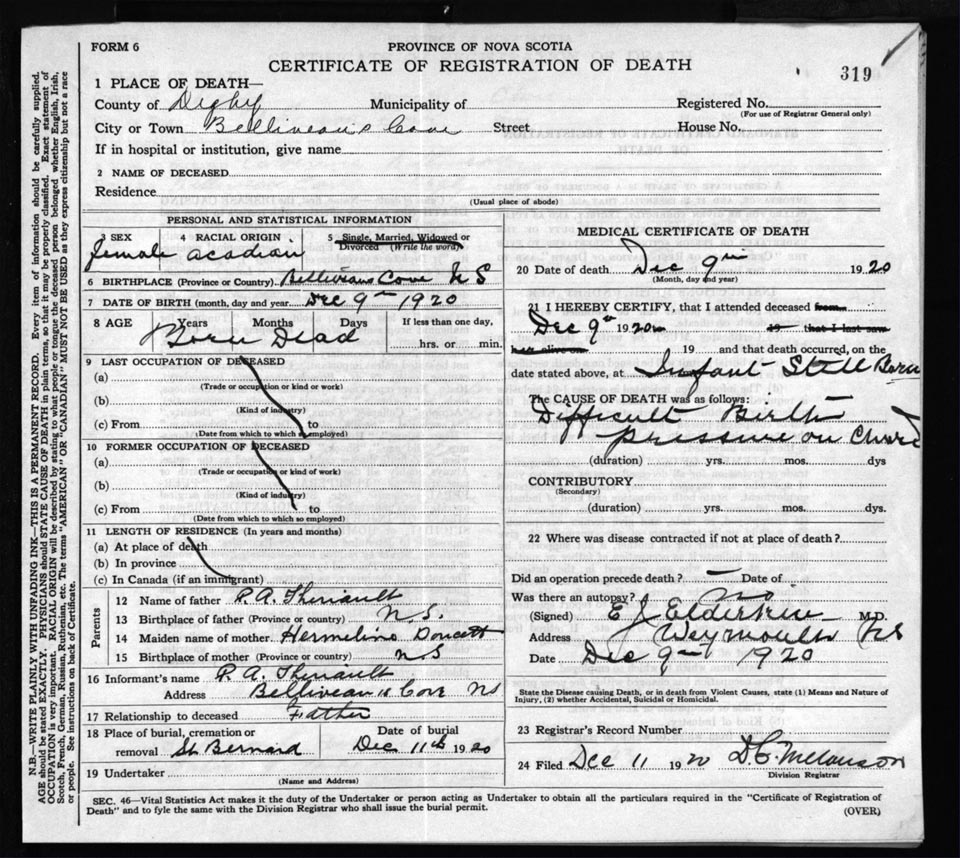 FORM 6
PROVINCE OF NOVA SCOTIA
CERTIFICATE OF REGISTRATION OF DEATH
319
1 PLACE OF DEATH—
County of Digby Municipality of Registered No.
(For use of Registrar General only)
City or Town Belliveau's Cove Street House No.
If in hospital or institution, give name
2 NAME OF DECEASED
Residence
(Usual place of abode)
PERSONAL AND STATISTICAL INFORMATION
3 SEX 4 RACIAL ORIGIN 5 Single, Married, Widowed or Divorced (Write the word)
female acadian
6 BIRTHPLACE (Province or Country) Belliveaus Cove N S
7 DATE OF BIRTH (month, day and year) Dec 9th 1920
8 AGE Years Months Days If less than one day,
Born Dead hrs. or min.
9 LAST OCCUPATION OF DECEASED
(a)
(Trade or occupation or kind of work)
(b)
(Kind of industry)
(c) From to
(Date from which to which so employed)
10 FORMER OCCUPATION OF DECEASED
(a)
(Trade or occupation or kind of work)
(b)
(Kind of industry)
(c) From to
(Date from which to which so employed)
11 LENGTH OF RESIDENCE (In years and months)
(a) At place of death
(b) In province
(c) In Canada (if an immigrant)
Parents
12 Name of father P. A. Theriault
13 Birthplace of father (Province or country) N.S.
14 Maiden name of mother Hermeline Doucett
15 Birthplace of mother (Province or country) N S
16 Informant's name P. A. Theriault
Address Belliveau's Cove NS
17 Relationship to deceased Father
18 Place of burial, cremation or removal St. Bernard Date of burial Dec 11th 1920
19 Undertaker
(Name and Address)
MEDICAL CERTIFICATE OF DEATH
20 Date of death Dec 9th 1920
(Month, day and year)
21 I HEREBY CERTIFY, that I attended deceased from
Dec 9th 1920 19 that I last saw
her alive on 19 and that death occurred, on the
date stated above, at Infant Still Born
The CAUSE OF DEATH was as follows:
Difficult Birth
pressure on Chord
(duration) yrs. mos. dys
CONTRIBUTORY
(Secondary)
(duration) yrs. mos. dys.
22 Where was disease contracted if not at place of death?
Did an operation precede death? Date of
Was there an autopsy? No
(Signed) E J Elderkin M.D.
Address Weymouth NS
Date Dec 9th 1920
State the Disease causing Death, or in death from Violent Causes, state (1) Means and Nature of
Injury, (2) whether Accidental, Suicidal or Homicidal.
23 Registrar's Record Number
24 Filed Dec 11 1920 D. C. Melanson
Division Registrar
SEC. 46—Vital Statistics Act makes it the duty of the Undertaker or person acting as Undertaker to obtain all the particulars required in the "Certificate of Registration of
Death" and to fyle the same with the Division Registrar who shall issue the burial permit.
(OVER)
N.B.—WRITE PLAINLY WITH UNFADING INK—THIS IS A PERMANENT RECORD. Every item of information should be carefully supplied.
AGE should be stated EXACTLY. PHYSICIANS should STATE CAUSE OF DEATH in plain terms, so that it may be properly classified. Exact statement of
OCCUPATION is very important. RACIAL ORIGIN will be described by stating to what people or tongue the deceased person belonged whether English, Irish,
Scotch, French, German, Russian, Ruthenian, etc. The terms "AMERICAN" OR "CANADIAN" MUST NOT BE USED as they express citizenship but not a race
or people. See instructions on back of Certificate.